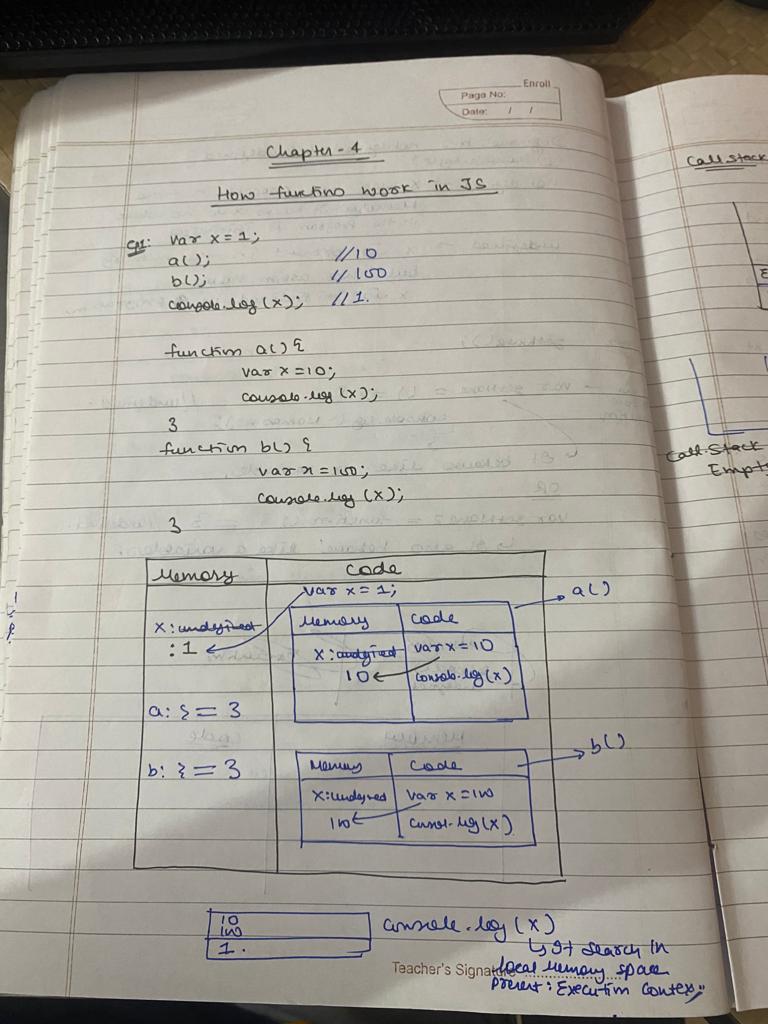 Enroll
Page No:
Date: / /
Chapter - 4
How functino work in JS
var x = 1;
a(); //10
b(); //100
console.log (x); //1.
function a() {
var x = 10;
console.log (x);
}
function b() {
var x = 100;
console.log (x);
}
Memory Code
var x = 1;
x: undefined
: 1
a: { = }
b: { = }
a()
Memory Code
x: undefined var x = 10
10 console.log(x)
b()
Memory Code
x: undefined var x = 100
100 consol.log(x)
10
100
1.
console.log (x)
↳ It search in
local memory space
present: Execution Contex
Teacher's Signature
Call Stack
E
Call-Stack
Empty